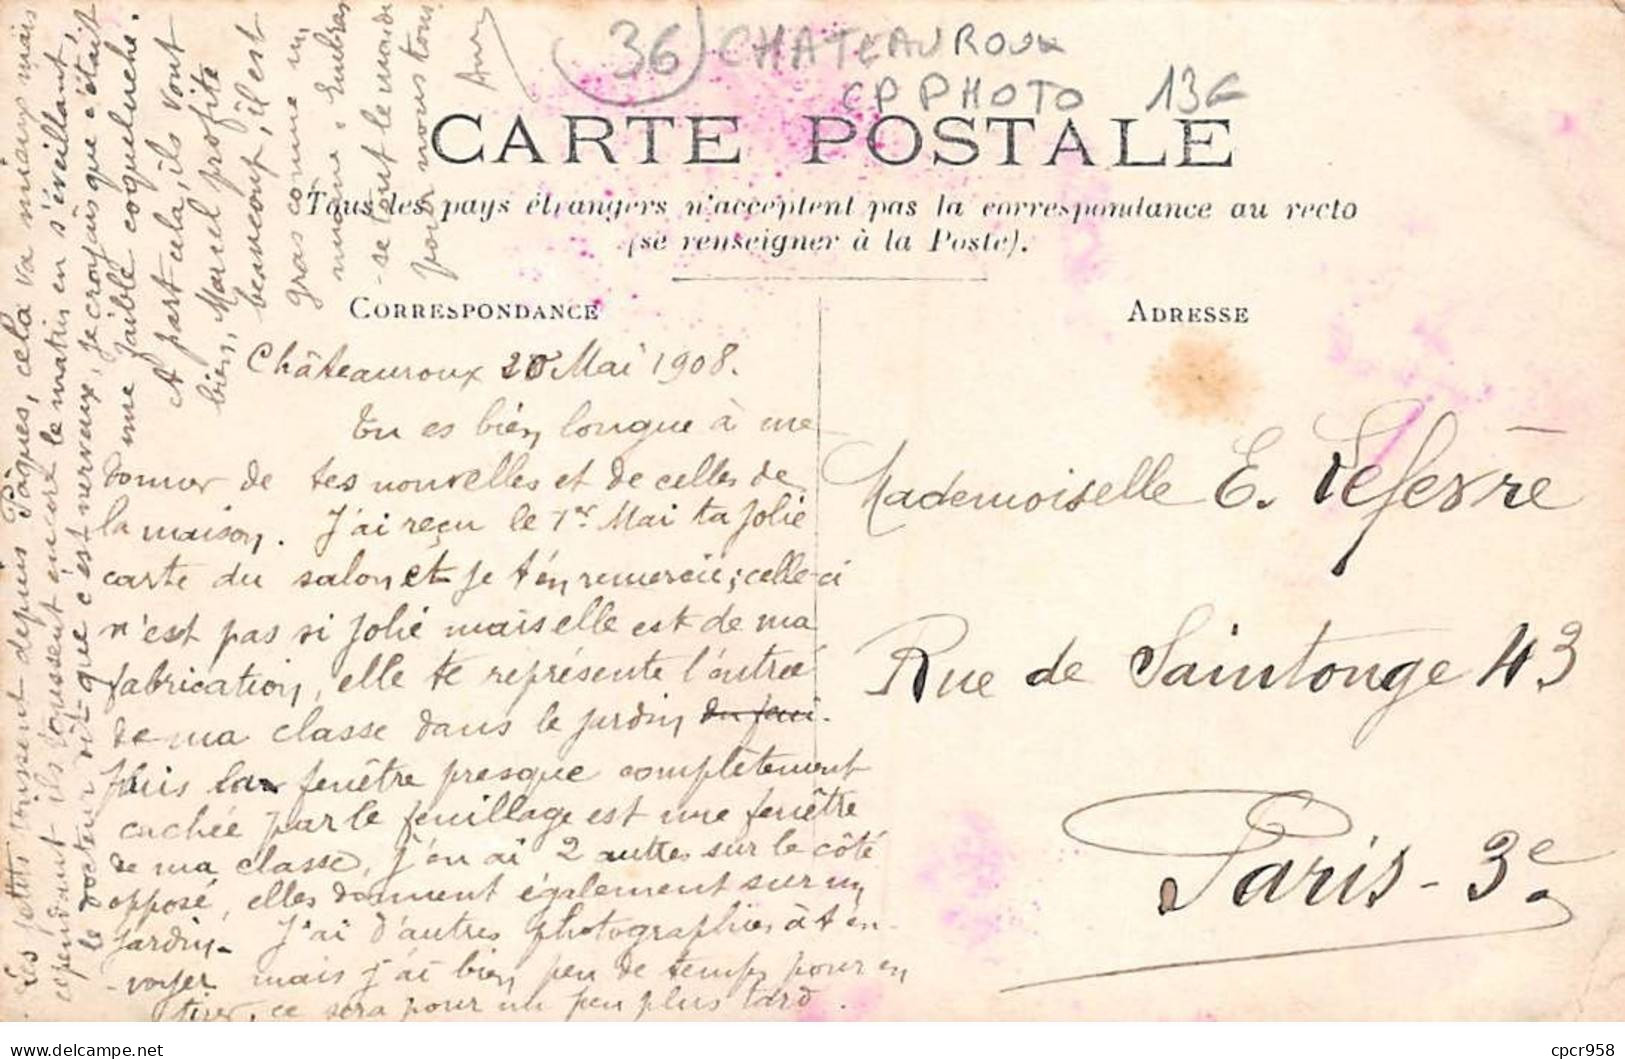 (36) CHATEAUROUX
CP PHOTO 13€
CARTE POSTALE
Tous les pays étrangers n'acceptent pas la correspondance au recto
(se renseigner à la Poste).
CORRESPONDANCE
ADRESSE
Châteauroux 20 Mai 1908.
Tu es bien longue à me
donner de tes nouvelles et de celles de
la maison. J'ai reçu le 1er Mai ta jolie
carte du salon et je t'en remercie; celle-ci
n'est pas si jolie mais elle est de ma
fabrication, elle te représente l'entrée
de ma classe dans le jardin
Puis la fenêtre presque complètement
cachée par le feuillage est une fenêtre
de ma classe, j'en ai 2 autres sur le côté
opposé, elles donnent également sur un
jardin. J'ai d'autres photographies à t'en-
-voyer mais j'ai bien peu de temps pour en
tirer, ce sera pour un peu plus tard.
Les petits toussent depuis Pâques, cela va mieux mais
cependant ils toussent encore le matin en s'éveillant,
le docteur dit que c'est nerveux, je croyais que c'était
une faible coqueluche.
A part cela, ils vont
bien, Marcel profite
beaucoup, il est
gras comme un
moine. Embras
-se tout le monde
pour nous tous.
Mademoiselle E. Lefevre
Rue de Saintonge 43
Paris - 3e
delcampe.net
cpcr958